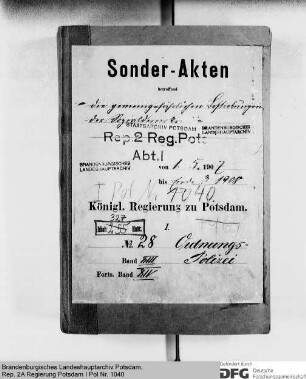 Sonder-Akten
betreffend
die gemeingefährlichen Bestrebungen
der Sozialdemokratie
STAATSARCHIV POTSDAM
BRANDENBURGISCHES
LANDESHAUPTARCHIV
Rep. 2 Reg. Pots
Abt. I
BRANDENBURGISCHES
LANDESHAUPTARCHIV
von 1. 5. 1907
bis Ende 3 1908
I Pol Nr. 1040
Königl. Regierung zu Potsdam.
327
I.
№ 28 Ordnungs-
Polizei
Band XIII
Forts. Band XIV
Brandenburgisches Landeshauptarchiv Potsdam,
Rep. 2A Regierung Potsdam I Pol Nr. 1040
Gefördert durch
DFG Deutsche
Forschungsgemeinschaft